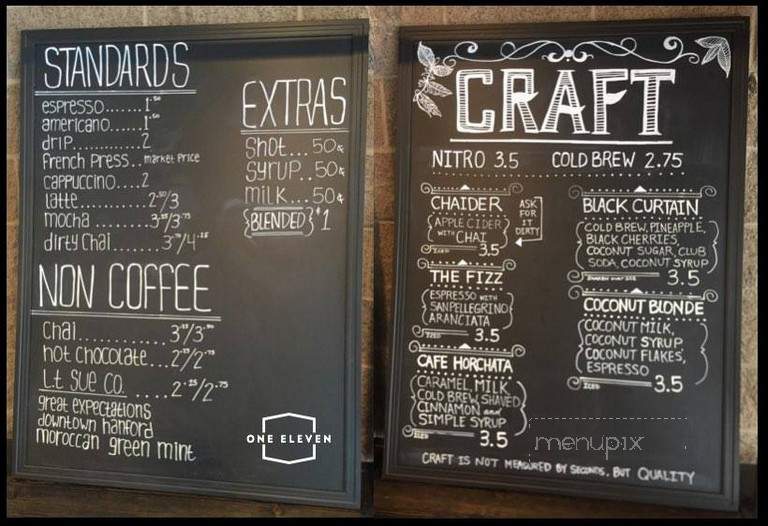 STANDARDS
espresso.......1.50
americano......1.50
drip............2
french press..market price
cappuccino....2
latte............2.50/3
mocha
dirty chai
EXTRAS
Shot...50¢
Syrup..50¢
milk...50¢
{BLENDED} $1
NON COFFEE
Chai
hot chocolate
L.t. Sue Co.
great expectations
downtown hanford
moroccan green mint
ONE ELEVEN
CRAFT
NITRO 3.5 COLD BREW 2.75
CHAIDER
APPLE CIDER
WITH CHAI
ICED 3.5
ASK
FOR
IT
DIRTY
THE FIZZ
ESPRESSO WITH
SANPELLEGRINO
ARANCIATA
ICED 3.5
CAFE HORCHATA
CARAMEL, MILK,
COLD BREW, SHAVED
CINNAMON and
SIMPLE SYRUP
ICED 3.5
BLACK CURTAIN
COLD BREW, PINEAPPLE,
BLACK CHERRIES,
COCONUT SUGAR, CLUB
SODA, COCONUT SYRUP
3.5
COCONUT BLONDE
COCONUT MILK,
COCONUT SYRUP
COCONUT FLAKES,
ESPRESSO
ICED 3.5
menupix
CRAFT IS NOT MEASURED BY SECONDS, BUT QUALITY